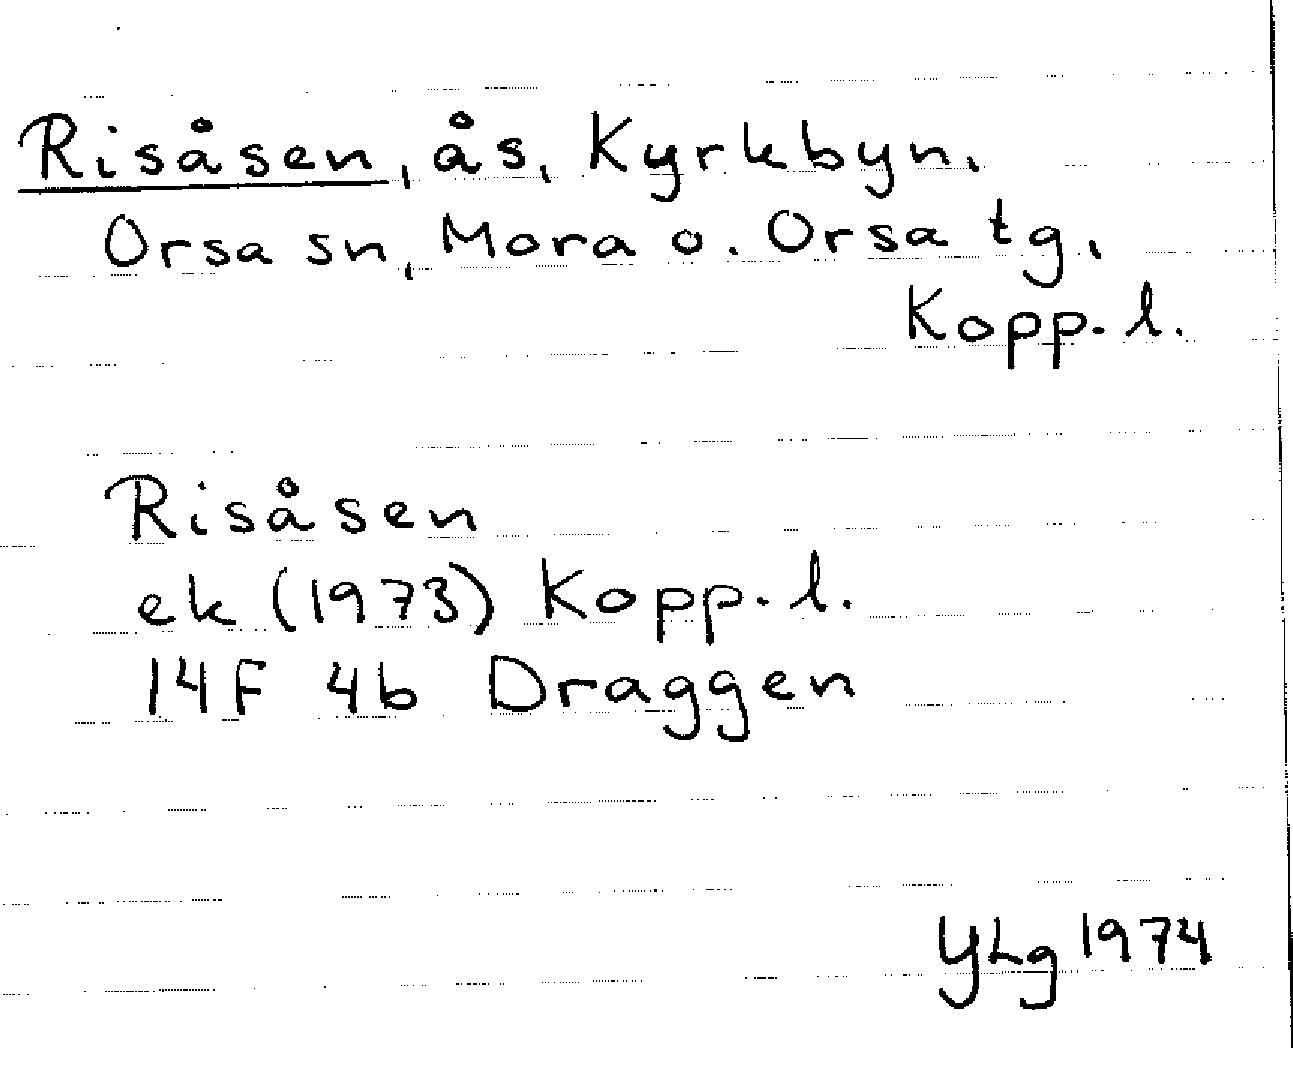 Risåsen, ås, Kyrkbyn,
Orsa sn, Mora o. Orsa tg,
Kopp. l.
Risåsen
ek (1973) Kopp. l.
14F 4b Draggen
YLg 1974